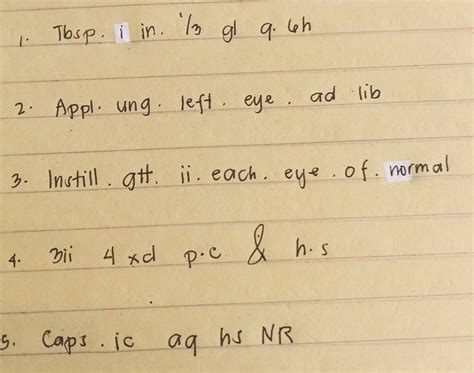 1. Tbsp. i in. 1/3 gl q. 6h
2. Appl. ung. left. eye. ad lib
3. Instill. gtt. ii. each. eye. of. normal
4. 3ii 4 xd p.c & h.s
5. Caps. ic aq hs NR